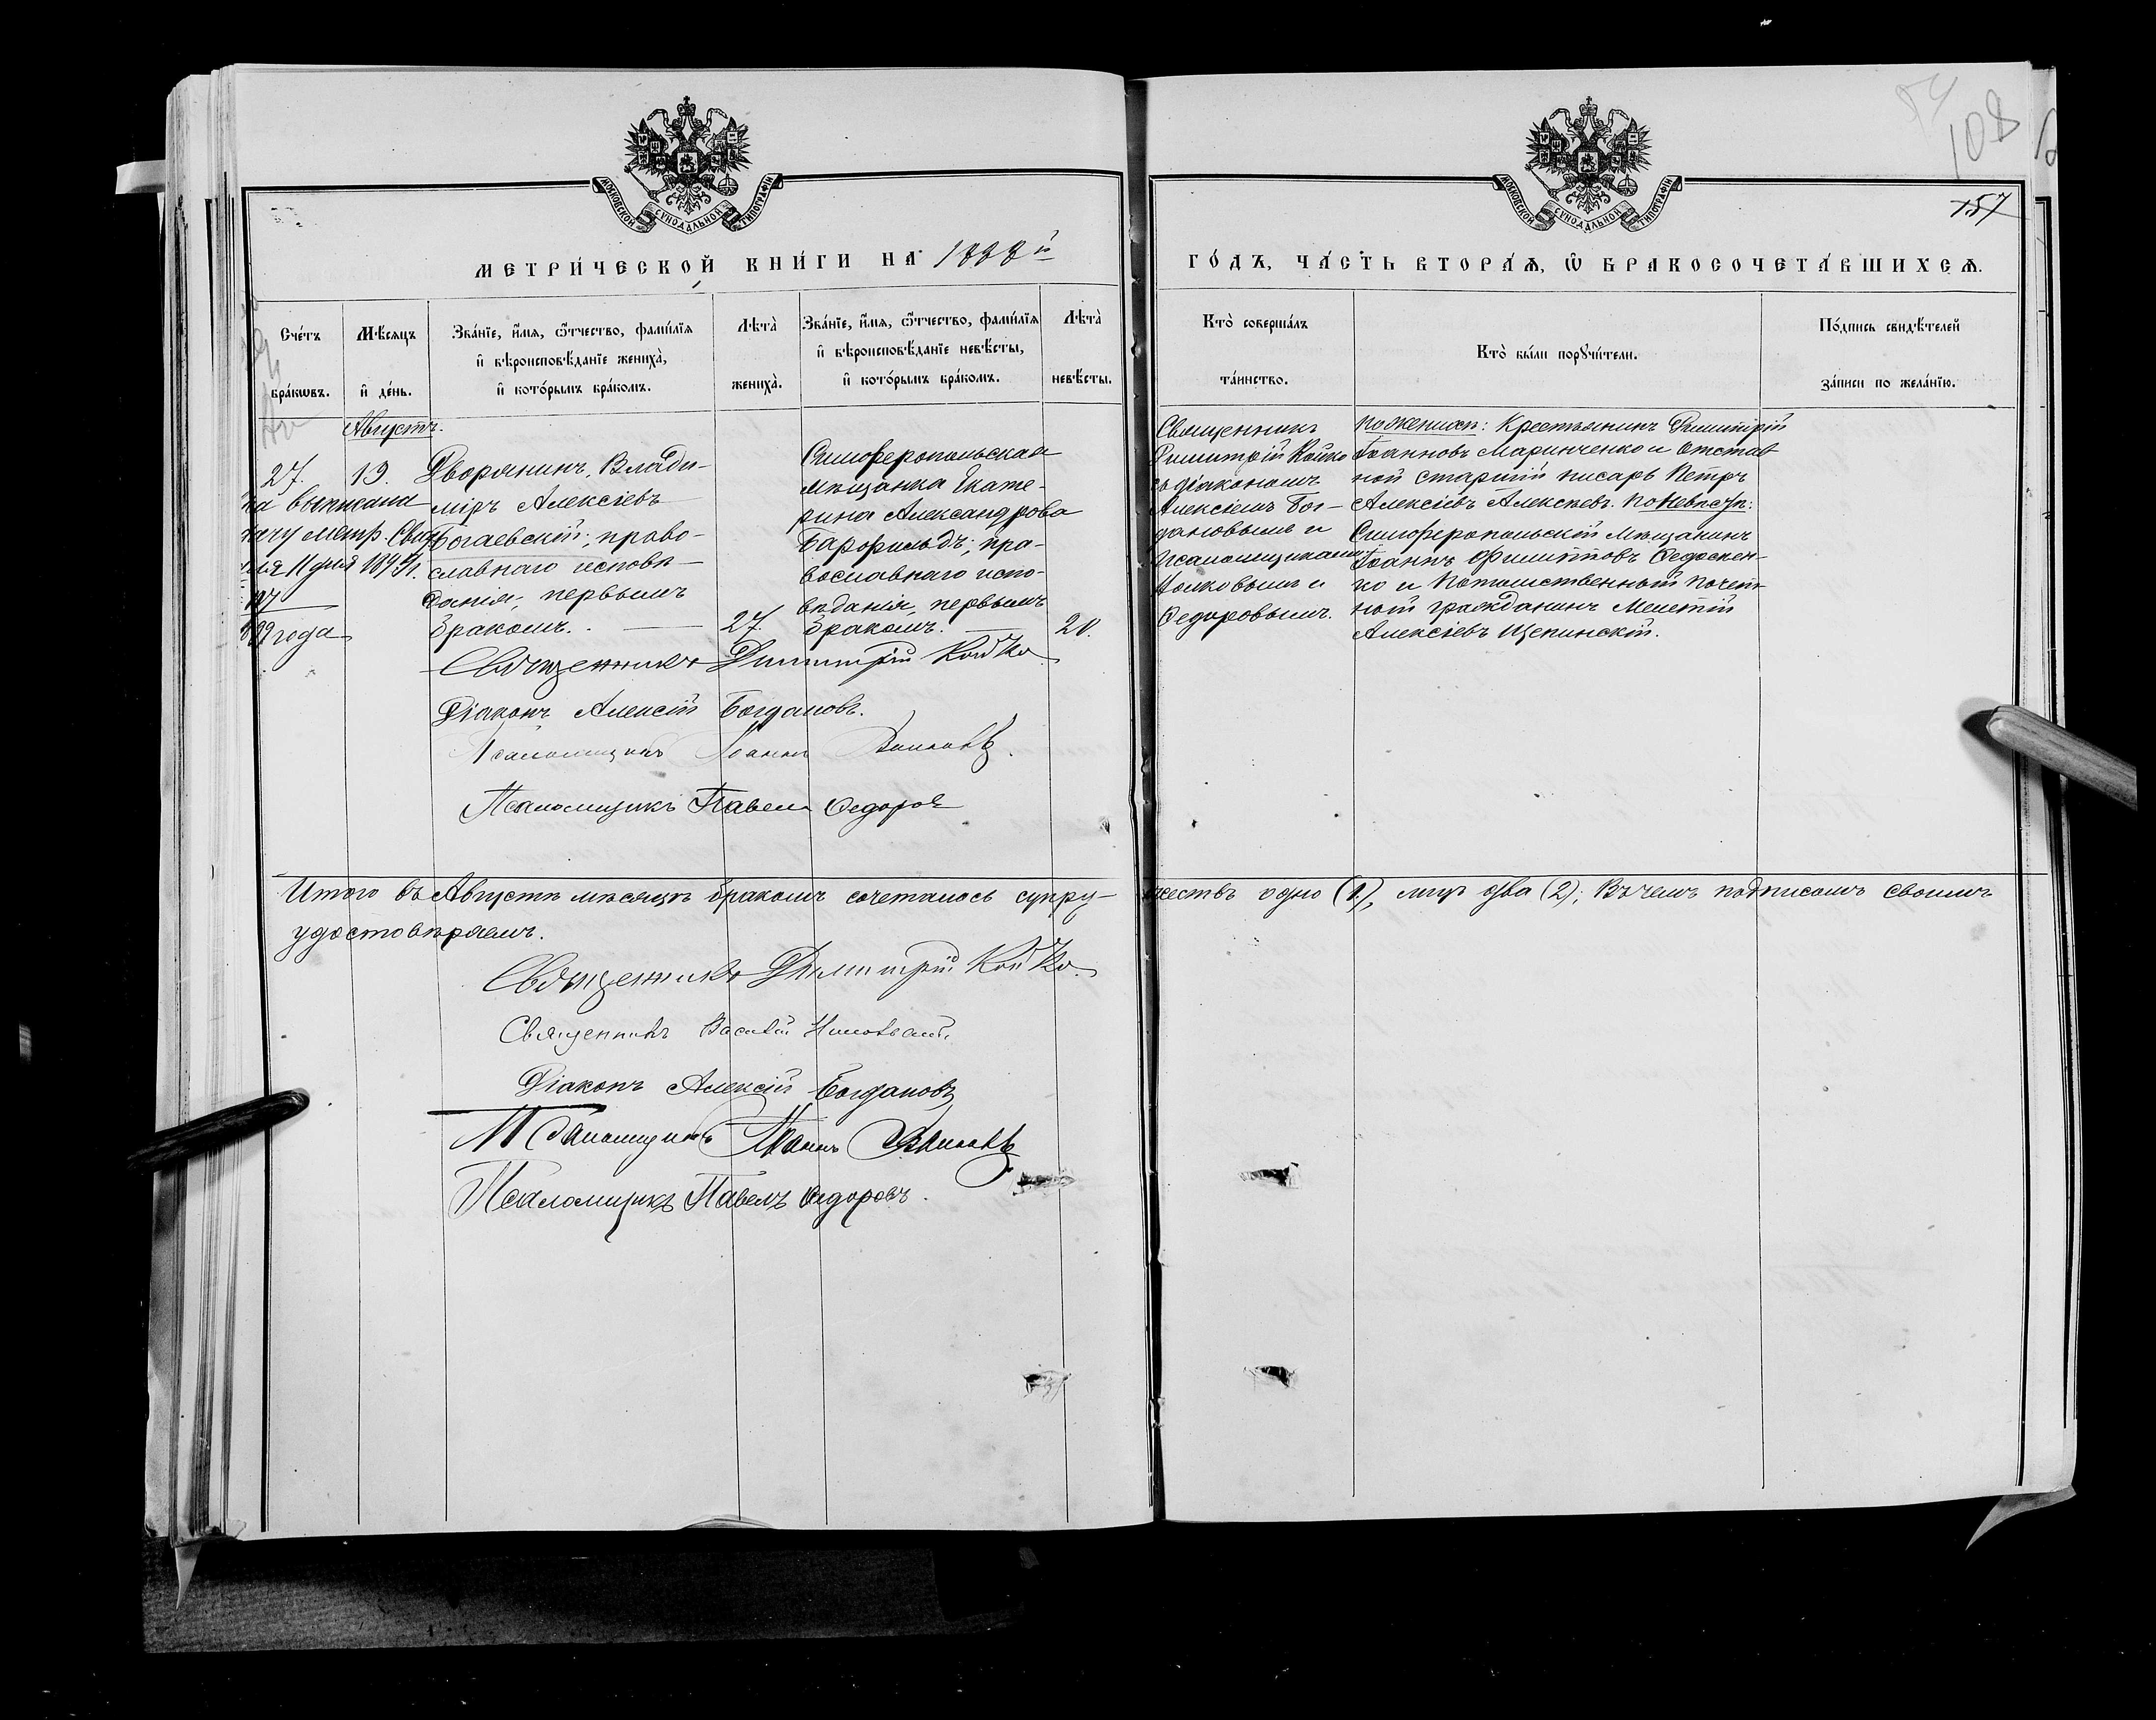 108
157
МОСКОВСКОЙ СѴНОДАЛЬНОЙ ТИПОГРАФІИ
МОСКОВСКОЙ СѴНОДАЛЬНОЙ ТИПОГРАФІИ
МЕТРИ́ЧЕСКОЙ КНИ́ГИ НА 1898 й
ГО́ДЪ, ЧА́СТЬ ВТОРА́Ѧ, Ѡ҆ БРАКОСОЧЕТА́ВШИХСѦ.
Сче́тъ бра́кѡвъ.
Мѣ́сѧцъ и҆ де́нь.
Зва́нїе, и҆́мѧ, ѻ҆́тчество, фами́лїѧ
и҆ вѣроисповѣ́данїе жениха̀,
и҆ кото́рымъ бра́комъ.
Лѣта̀ жениха̀.
Зва́нїе, и҆́мѧ, ѻ҆́тчество, фами́лїѧ
и҆ вѣроисповѣ́данїе невѣ́сты,
и҆ кото́рымъ бра́комъ.
Лѣта̀ невѣ́сты.
Кто̀ соверша́лъ
та́инство.
Кто̀ бы́ли порꙋчи́тели.
По́дпись свидѣ́телей
за́писи по жела́нїю.
Августъ.
27.
19.
выписана
метр. Свид
11 дня
года
Дворянинъ, Влади-
міръ Алексіевъ
Богаевскій; право-
славнаго исповѣ-
данія, первымъ
бракомъ.
27.
Симферопольская
мѣщанка Екате-
рина Александрова
Барфильдъ; пра-
вославнаго испо-
вѣданія, первымъ
бракомъ.
20.
Священникъ
Димитрій Койко
съ діакономъ
Алексіемъ Бог-
дановымъ и
псаломщиками
и
Федоровымъ.
По женихѣ: Крестьянинъ Димитрій
Іоанновъ Маринченко и отстав
ной старшій писарь Петръ
Алексіевъ Алексѣевъ. По невѣстѣ:
Симферопольскій мѣщанинъ
Іоаннъ Филипповъ Федосен-
ко и потомственный почет-
ной гражданинъ Мелетій
Алексіевъ Щепинскій.
Священникъ Димитрій Койко
Діаконъ Алексій Богдановъ.
Псаломщикъ Іоаннъ
Псаломщикъ Павелъ Федоровъ
Итого въ Августѣ мѣсяцѣ бракомъ сочеталось супру-
жествъ одно (1), лицъ два (2); въ чемъ подписомъ своимъ
удостовѣряемъ.
Священникъ Димитрій Койко.
Священникъ Василій
Діаконъ Алексій Богдановъ
Псаломщикъ Іоаннъ
Псаломщикъ Павелъ Федоровъ.